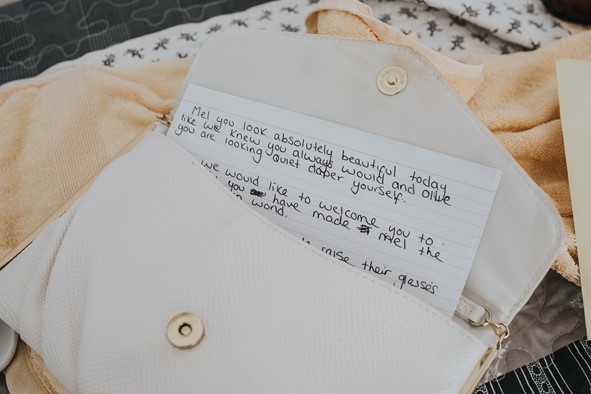 Mel you look absolutely beautiful today
like we knew you always would and Ollie
you are looking quiet daper yourself.
we would like to welcome you to
you have made Mel the
world.
raise their glasses